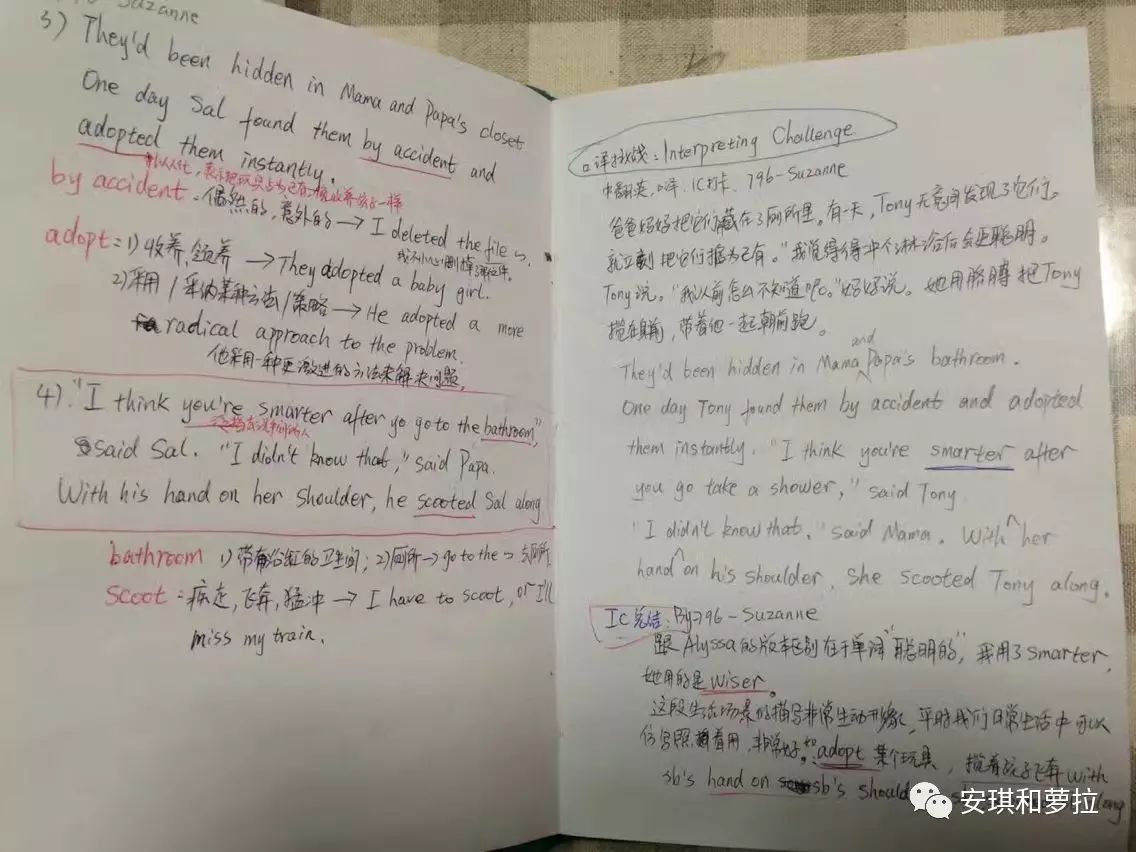 Suzanne
3) They'd been hidden in Mama and Papa's closet
One day Sal found them by accident and
adopted them instantly.
by accident: 偶然的，意外的 → I deleted the file ~.
我不小心删掉了
adopt = 1) 收养，领养 → They adopted a baby girl.
2) 采用/采纳某种方法/策略 → He adopted a more
radical approach to the problem.
他采用一种更激进的方法来解决问题。
4). "I think you're smarter after yo go to the bathroom,"
said Sal. "I didn't know that," said Papa.
With his hand on her shoulder, he scooted Sal along
bathroom 1) 带有浴缸的卫生间; 2) 厕所 → go to the ~ 去厕所
scoot = 疾走，飞奔，猛冲 → I have to scoot, or I'll
miss my train.
口译挑战: Interpreting Challenge
中翻英，口译，IC打卡、796-Suzanne
爸爸妈妈把它们藏在了厕所里。有一天，Tony无意间发现了它们。
就立刻把它们据为己有。"我觉得得冲个淋浴后会更聪明。
Tony说。"我以前怎么不知道呢。"妈妈说。她用胳膊把Tony
揽在身前，带着他一起朝前跑。
They'd been hidden in Mama and Papa's bathroom.
One day Tony found them by accident and adopted
them instantly. "I think you're smarter after
you go take a shower," said Tony.
"I didn't know that." said Mama. With her
hand on his shoulder, she scooted Tony along.
IC总结: By796-Suzanne
跟Alyssa的版本区别在于单词"聪明的"，我用了smarter，
她用的是wiser。
这段生活场景的描写非常生动形象，平时我们日常生活中可以
仿写照着用，非常好。如: adopt 某个玩具，揽着孩子飞奔with
sb's hand on sb's should
安琪和萝拉